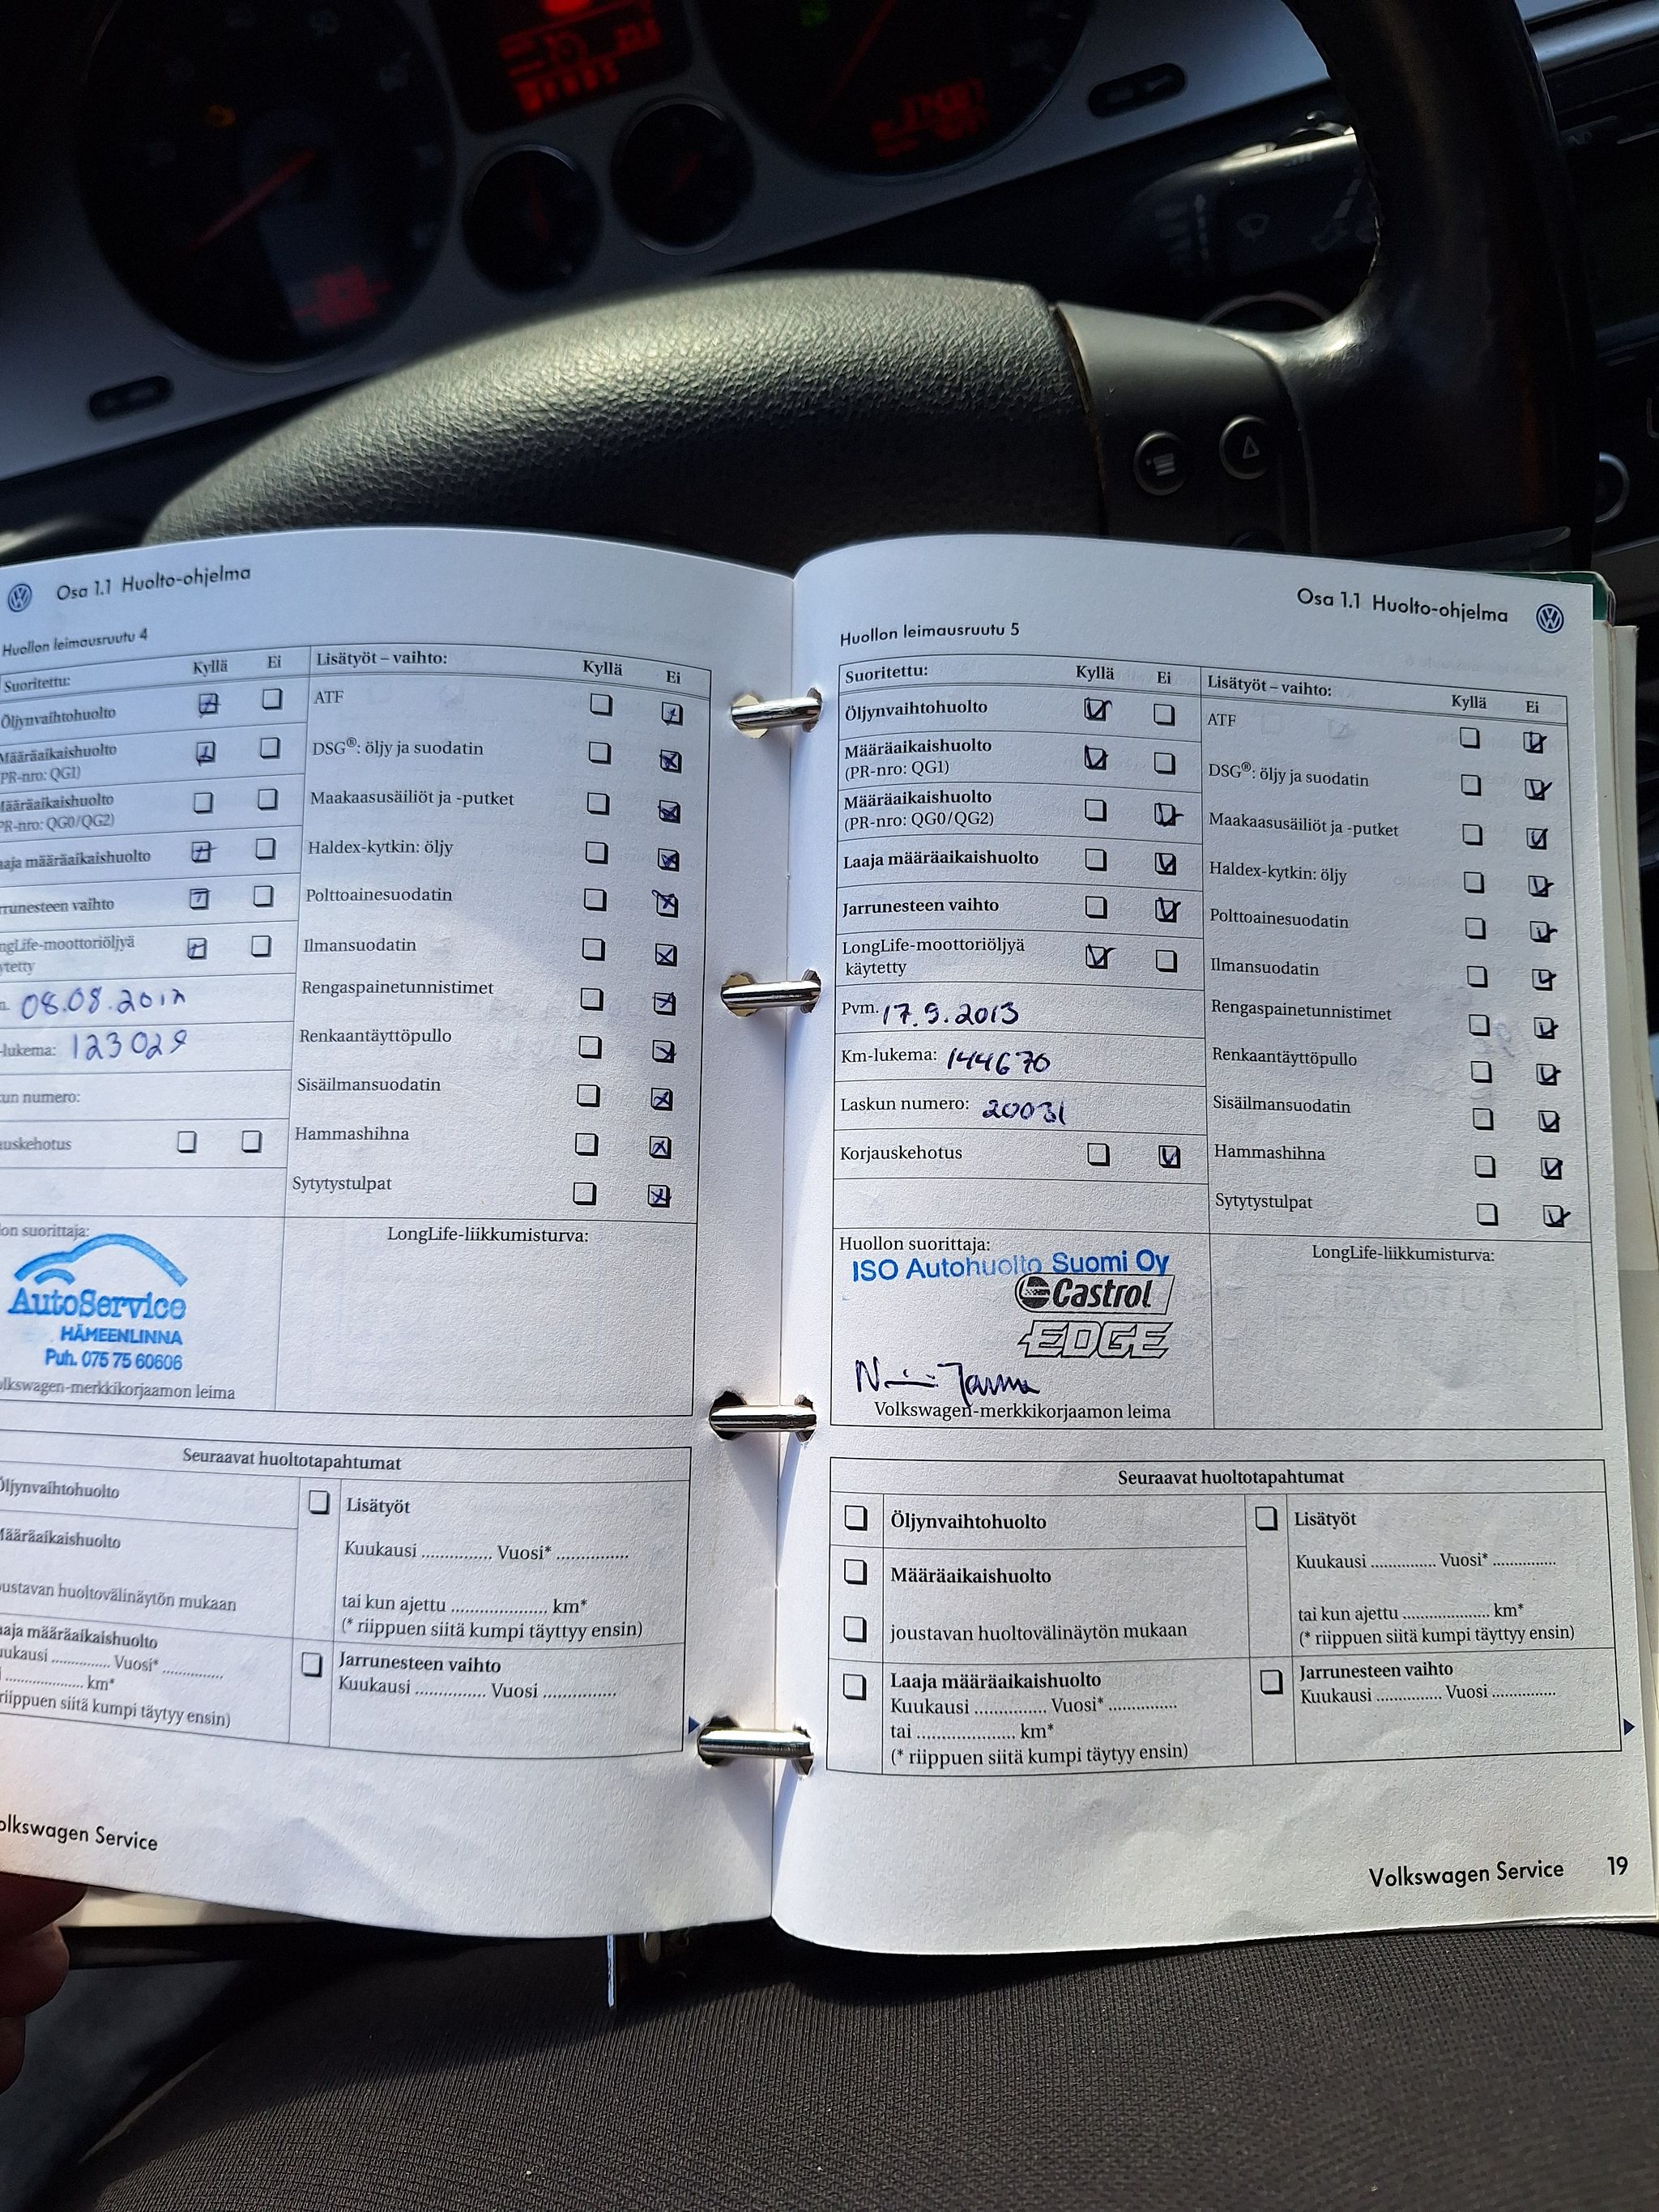 Osa 1.1 Huolto-ohjelma
Huollon leimausruutu 4
Suoritettu: Kyllä Ei
Öljynvaihtohuolto
Määräaikaishuolto
PR-nro: QG1)
Määräaikaishuolto
PR-nro: QG0/QG2)
aaja määräaikaishuolto
rrunesteen vaihto
ngLife-moottoriöljyä
ytetty
08.08.2012
-lukema: 123029
un numero:
uskehotus
Lisätyöt – vaihto: Kyllä Ei
ATF
DSG®: öljy ja suodatin
Maakaasusäiliöt ja -putket
Haldex-kytkin: öljy
Polttoainesuodatin
Ilmansuodatin
Rengaspainetunnistimet
Renkaantäyttöpullo
Sisäilmansuodatin
Hammashihna
Sytytystulpat
on suorittaja:
AutoService
HÄMEENLINNA
Puh. 075 75 60606
olkswagen-merkkikorjaamon leima
LongLife-liikkumisturva:
Seuraavat huoltotapahtumat
Öljynvaihtohuolto
Määräaikaishuolto
oustavan huoltovälinäytön mukaan
aaja määräaikaishuolto
uukausi ............. Vuosi* .............
i .................... km*
riippuen siitä kumpi täytyy ensin)
Lisätyöt
Kuukausi ............... Vuosi* ...............
tai kun ajettu .................... km*
(* riippuen siitä kumpi täyttyy ensin)
Jarrunesteen vaihto
Kuukausi ............... Vuosi ...............
olkswagen Service
Osa 1.1 Huolto-ohjelma
Huollon leimausruutu 5
Suoritettu: Kyllä Ei
Öljynvaihtohuolto
Määräaikaishuolto
(PR-nro: QG1)
Määräaikaishuolto
(PR-nro: QG0/QG2)
Laaja määräaikaishuolto
Jarrunesteen vaihto
LongLife-moottoriöljyä
käytetty
Pvm. 17.9.2013
Km-lukema: 144670
Laskun numero: 20031
Korjauskehotus
Lisätyöt – vaihto: Kyllä Ei
ATF
DSG®: öljy ja suodatin
Maakaasusäiliöt ja -putket
Haldex-kytkin: öljy
Polttoainesuodatin
Ilmansuodatin
Rengaspainetunnistimet
Renkaantäyttöpullo
Sisäilmansuodatin
Hammashihna
Sytytystulpat
Huollon suorittaja:
ISO Autohuolto Suomi Oy
Castrol
EDGE
Volkswagen-merkkikorjaamon leima
LongLife-liikkumisturva:
Seuraavat huoltotapahtumat
Öljynvaihtohuolto
Määräaikaishuolto
joustavan huoltovälinäytön mukaan
Laaja määräaikaishuolto
Kuukausi ............... Vuosi* ...............
tai .................... km*
(* riippuen siitä kumpi täytyy ensin)
Lisätyöt
Kuukausi .............. Vuosi* ..............
tai kun ajettu .................... km*
(* riippuen siitä kumpi täyttyy ensin)
Jarrunesteen vaihto
Kuukausi .............. Vuosi ..............
Volkswagen Service 19